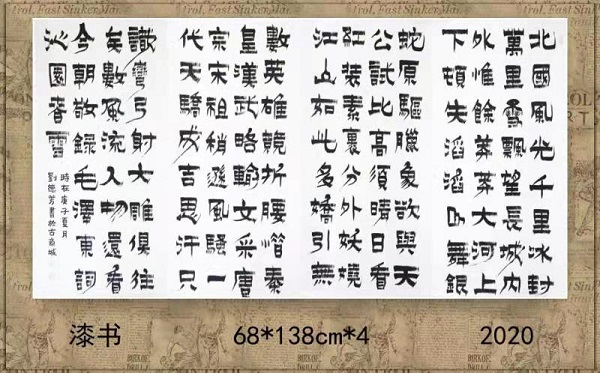 北國風光千里冰封
萬里雪飄望長城內
外惟餘莽莽大河上
下頓失滔滔山舞銀
蛇原驅臘象欲與天
公試比高須晴日看
紅装素裹分外妖嬈
江山如此多嬌引無
數英雄競折腰惜秦
皇漢武略輸文采唐
宗宋祖稍遜風騷一
代天驕成吉思汗只
識彎弓射大雕俱往
矣數風流人物還看
今朝敬録毛澤東詞
沁園春雪
時在庚子夏月
劉德芳書於古商城
漆书 68*138cm*4 2020